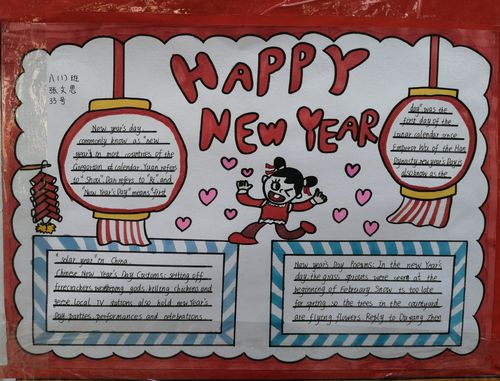 八(1)班
张文思
33号
HAPPY
NEW YEAR
New year's day,
commonly know as "new
year" in most countries of the
Gregorian calendar Yuan refers
to "Shou" Dan refers to "Ri" and
"New Year's Day" means "first
day" was the
first day of the
lunar calendar since
Emperor Wu of the Han
Dynasty new year's Day is
also know as the
"solar year" in China.
Chinese New Year's Day Customs: setting off
firecrackers gods, killing chickens and
geese local TV stations also hold new Year's
Day parties, performances and celebrations.
New year's Day Poems: In the new Year's
day, the grass sprouts were seen at the
beginning of February. Snow is too late
for spring, so the trees in the courtyard
are flying flowers. Reply to Ouyang Zhen